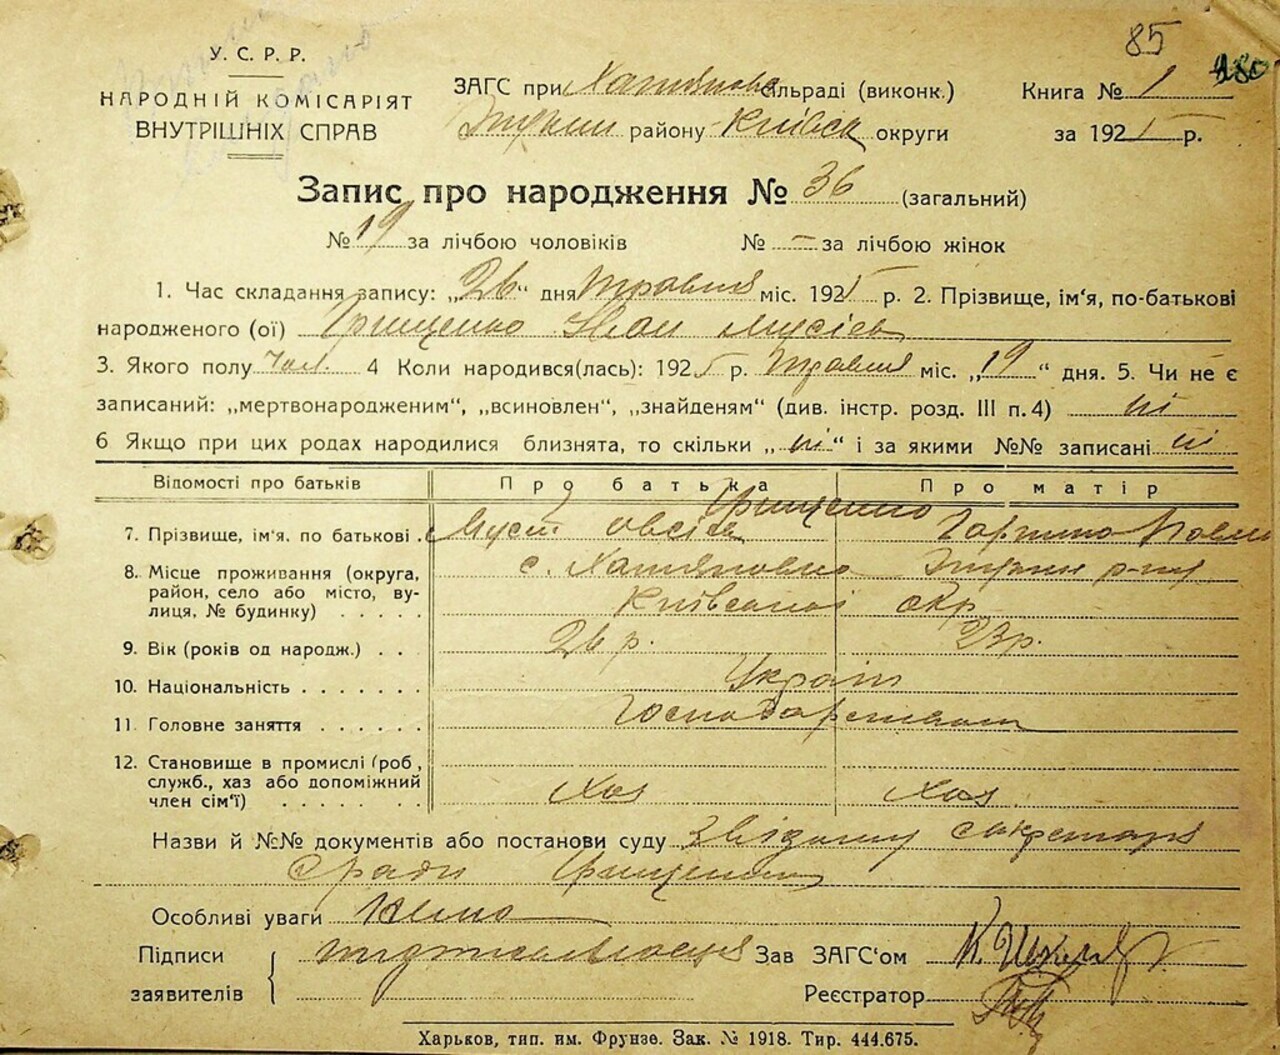 85
180
У. С. Р. Р.
НАРОДНІЙ КОМІСАРІЯТ
ВНУТРІШНІХ СПРАВ
ЗАГС при сільраді (виконк.)
району Київськ округи
Книга № 1
за 1925 р.
Запис про народження № 36 (загальний)
№ 19 за лічбою чоловіків № — за лічбою жінок
1. Час складання запису: „26“ дня травня міс. 1925 р. 2. Прізвище, ім‘я, по-батькові
народженого (ої) Грищенко Іван Мусієв
3. Якого полу чол. 4 Коли народився(лась): 1925 р. травня міс. „19“ дня. 5. Чи не є
записаний: „мертвонародженим“, „всиновлен“, „знайденям“ (див. інстр. розд. III п. 4) ні
6 Якщо при цих родах народилися близнята, то скільки „ні“ і за якими №№ записані ні
Відомості про батьків Про батька Про матір
Грищенко
7. Прізвище, ім‘я. по батькові . Мусій Овсієв
8. Місце проживання (округа, с.
район, село або місто, ву- Київської окр
лиця, № будинку) . . . . .
9. Вік (років од народж.) . . 26 р. 23 р.
10. Національність . . . . . . . Україн
11. Головне заняття . . . . . .
12. Становище в промислі (роб.,
служб., хаз або допоміжний Хаз Хаз
член сім‘ї) . . . . . .
Назви й №№ документів або постанови суду секретаря
с/ради Грищенка
Особливі уваги Нема
Підписи Зав ЗАГС‘ом
заявителів Реєстратор
Харьков, тип. им. Фрунзе. Зак. № 1918. Тир. 444.675.